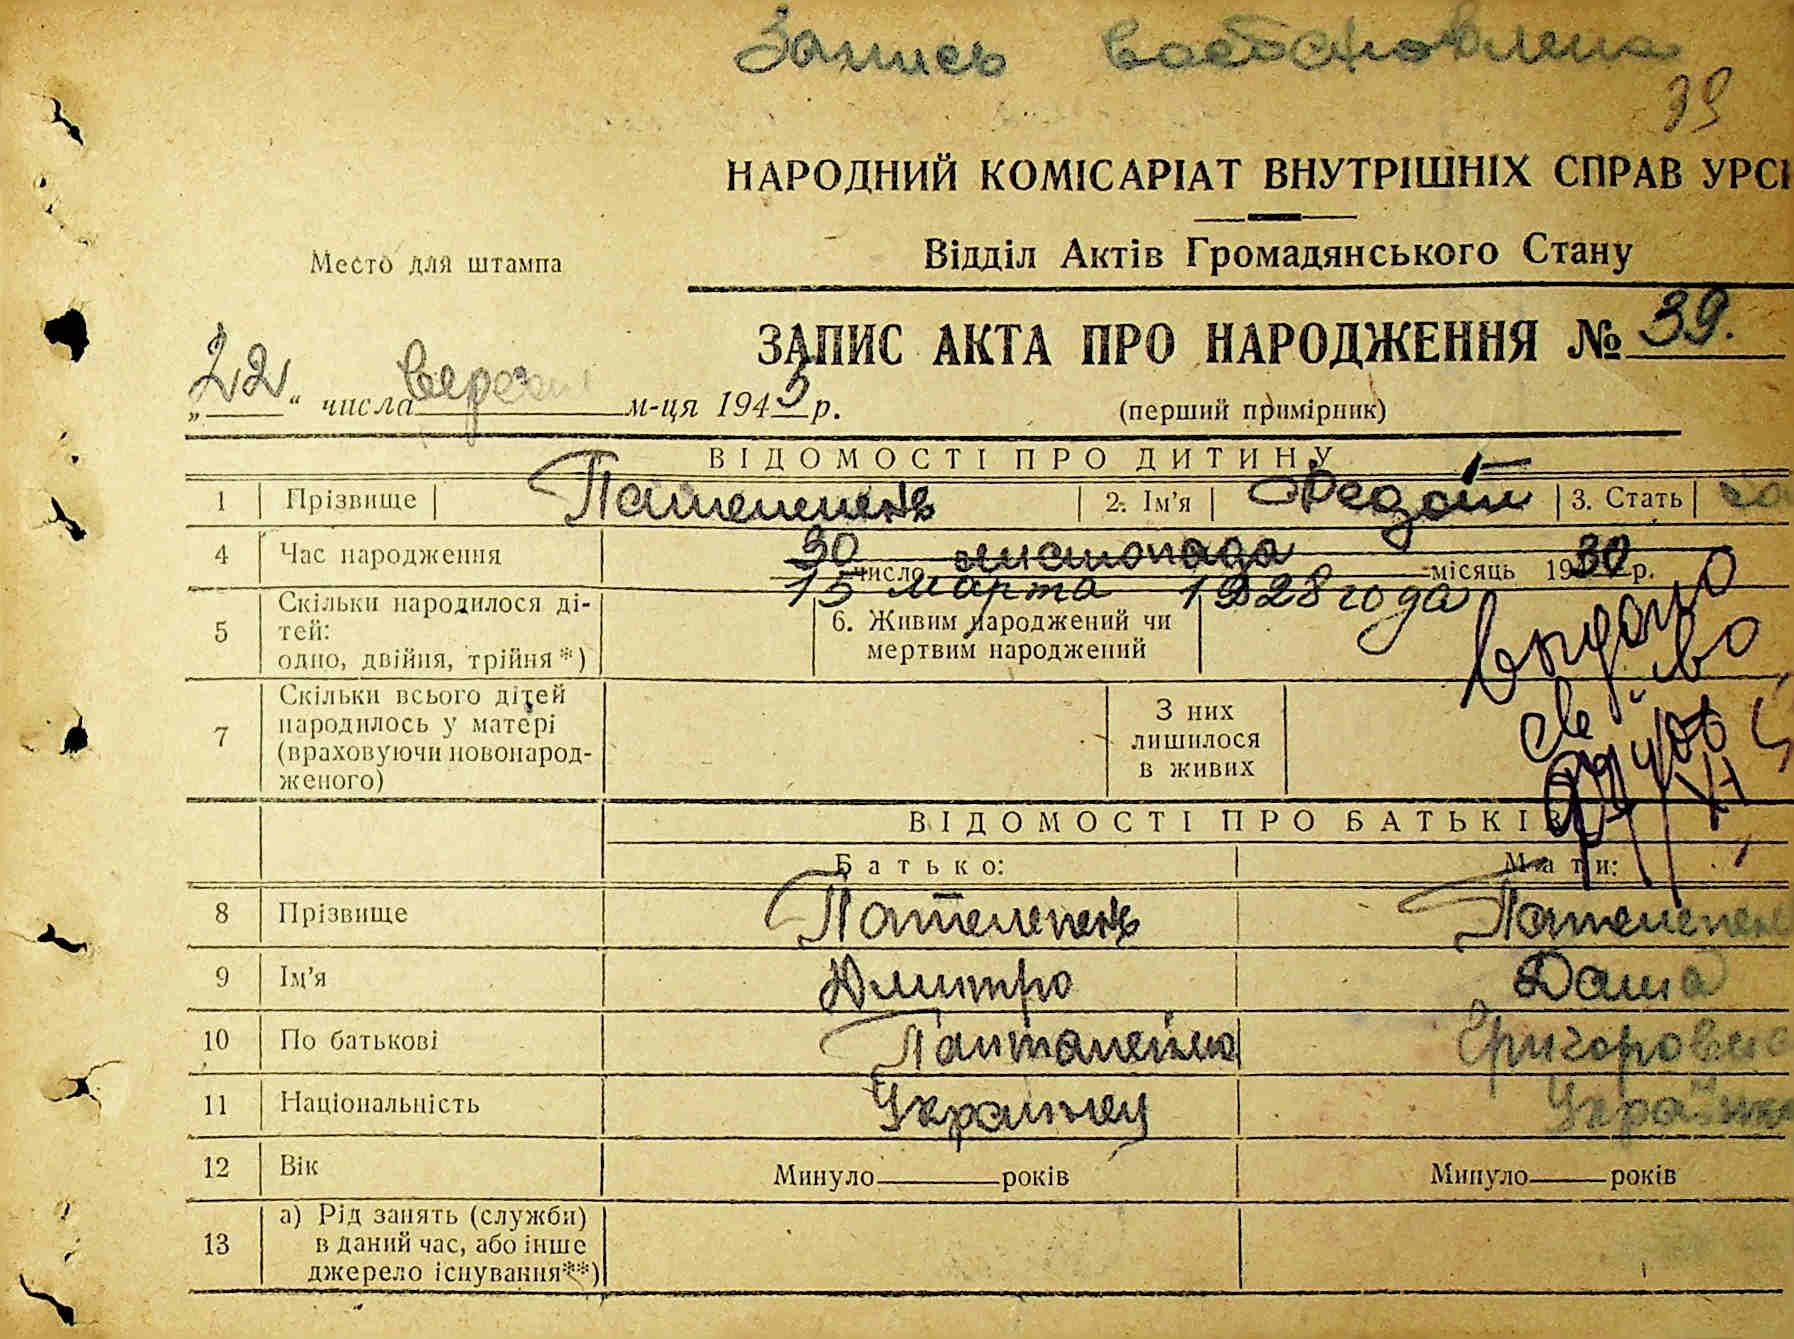 Запись востоновлена
39
НАРОДНИЙ КОМІСАРІАТ ВНУТРІШНІХ СПРАВ УРСР
Место для штампа
Відділ Актів Громадянського Стану
ЗАПИС АКТА ПРО НАРОДЖЕННЯ № 39.
„22“ числа березня м-ця 1945 р.
(перший примірник)
ВІДОМОСТІ ПРО ДИТИНУ
1 Прізвище Пателепень 2. Ім'я Федот 3. Стать
4 Час народження 30 число листопада місяць 1930 р.
15 марта 1928 года
5 Скільки народилося ді-
тей:
одно, двійня, трійня*)
6. Живим народжений чи
мертвим народжений
Выдано
св во
7 Скільки всього дітей
народилось у матері
(враховуючи новонарод-
женого)
З них
лишилося
в живих
ВІДОМОСТІ ПРО БАТЬКІВ
Батько: Мати:
8 Прізвище Пателепень Пателепень
9 Ім'я Дмитро Даша
10 По батькові Григоровна
11 Національність Украинец Українка
12 Вік Минуло років Минуло років
13 а) Рід занять (служби)
в даний час, або інше
джерело існування**)